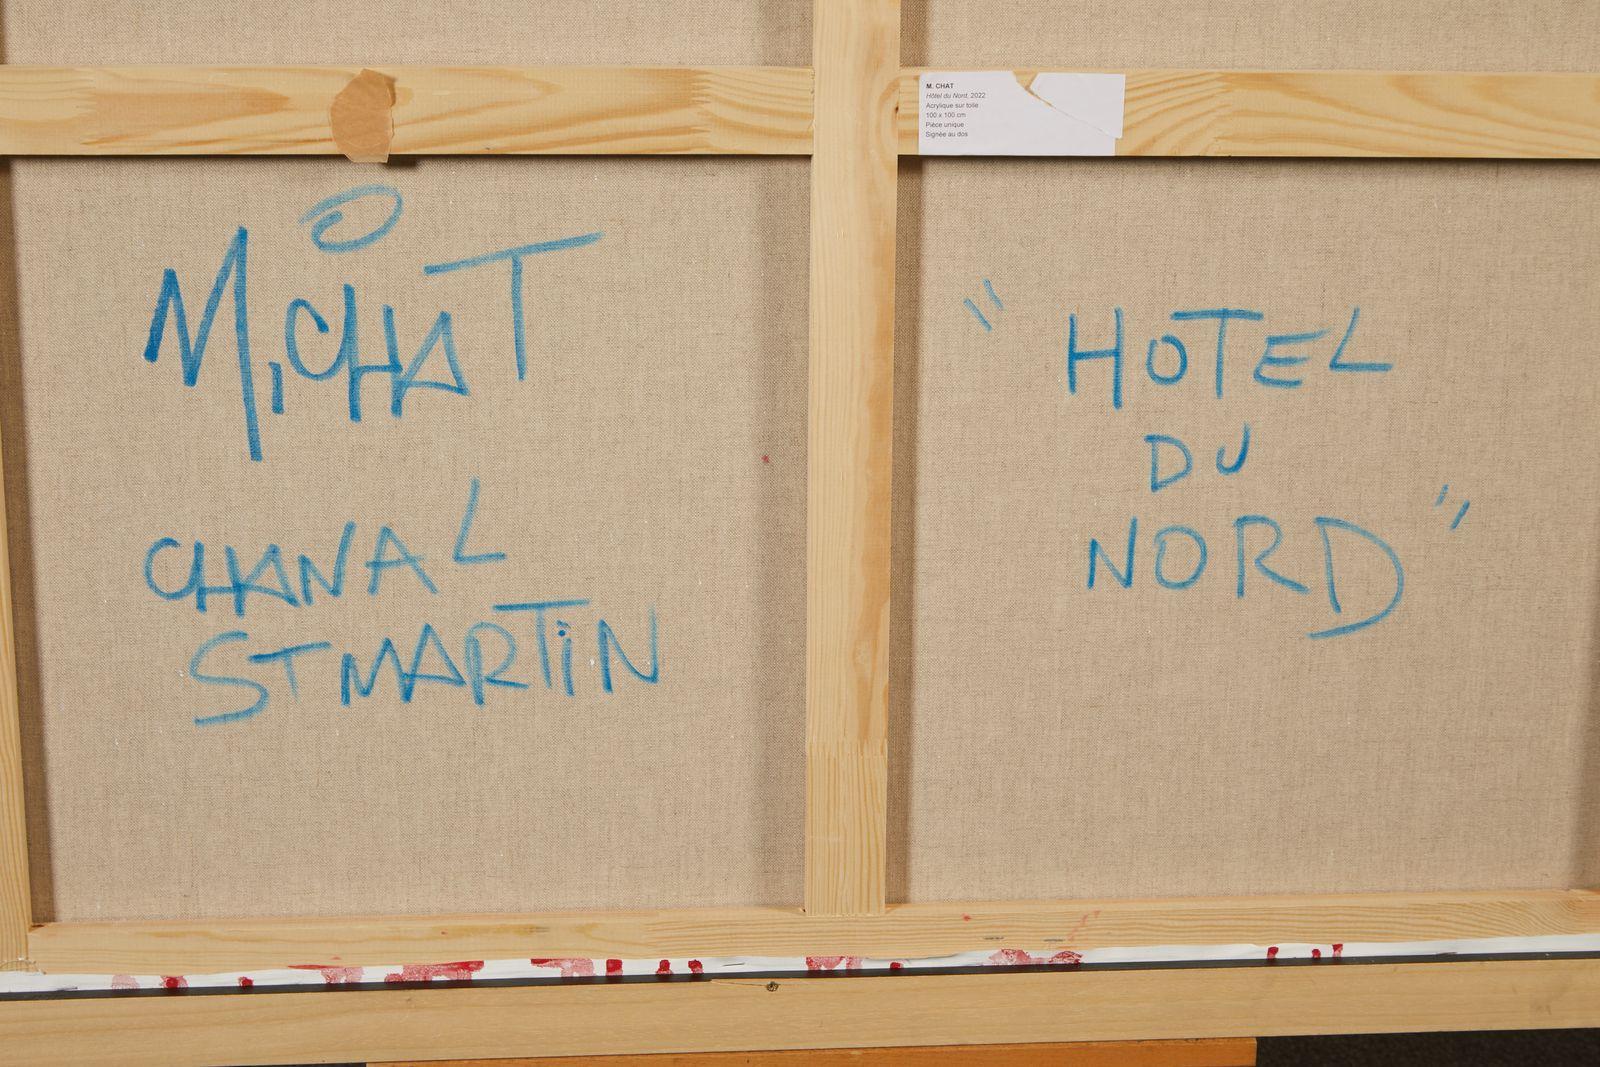 M. CHAT
Hôtel du Nord, 2022
Acrylique sur toile
100 x 100 cm
Pièce unique
Signée au dos
M.CHAT
CHANAL
ST MARTiN
"HOTEL
DU
NORD"